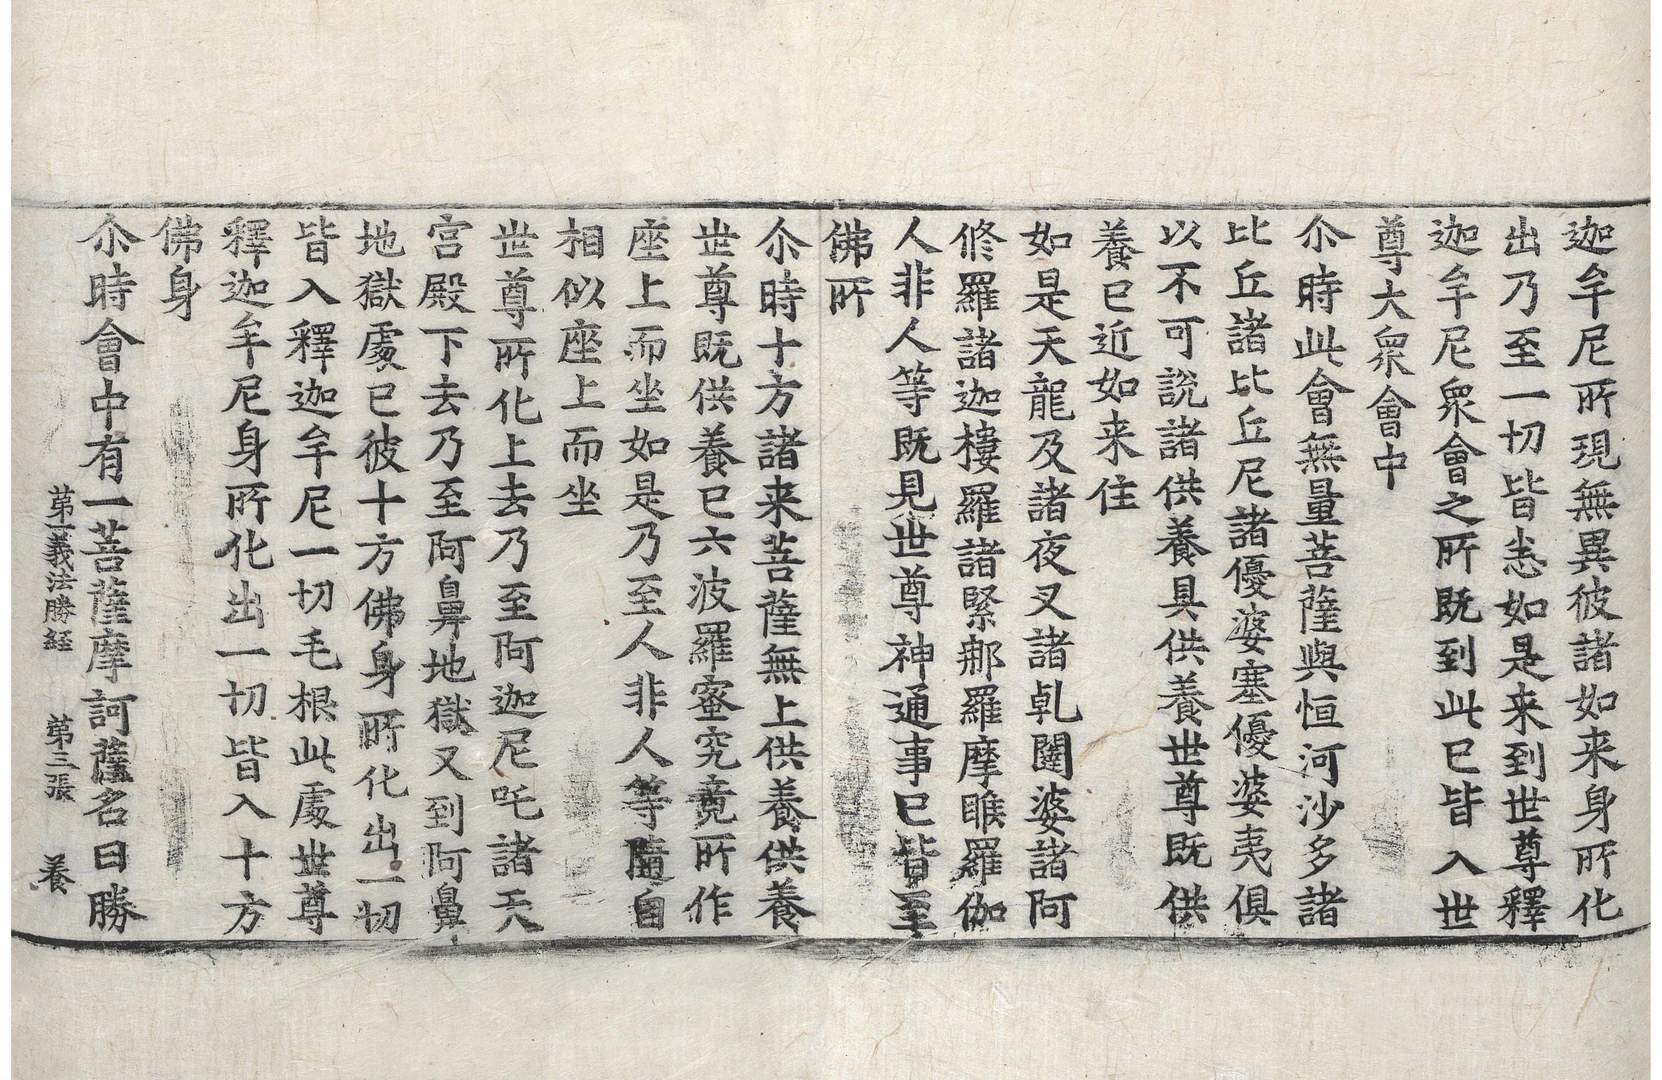 迦牟尼所現無異彼諸如来身所化
出乃至一切皆悉如是来到世尊釋
迦牟尼衆會之所既到此已皆入世
尊大衆會中
尒時此會無量菩薩與恒河沙多諸
比丘諸比丘尼諸優婆塞優婆夷俱
以不可說諸供養具供養世尊既供
養已近如来住
如是天龍及諸夜叉諸乹闥婆諸阿
修羅諸迦樓羅諸緊那羅摩睺羅伽
人非人等既見世尊神通事已皆至
佛所
尒時十方諸来菩薩無上供養供養
世尊既供養已六波羅蜜究竟所作
座上而坐如是乃至人非人等隨自
相似座上而坐
世尊所化上去乃至阿迦尼吒諸天
宮殿下去乃至阿鼻地獄又到阿鼻
地獄處已彼十方佛身所化出一切
皆入釋迦牟尼一切毛根此處世尊
釋迦牟尼身所化出一切皆入十方
佛身
尒時會中有一菩薩摩訶薩名曰勝
第一義法勝経 第三張 養